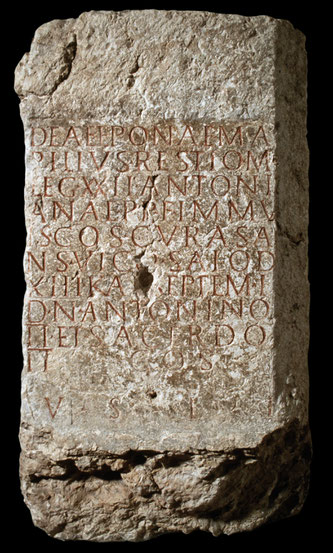 DEAE EPONAE MA
PILIVS RESTIO M
LEG XXII ANTONI
ANAE P P F IMMV
IS COS CVRAS A
NS VICO SALOD
XIIII KAL SEPTEM
D N ANTONINO
II ET SACERDO
II COS
V S L